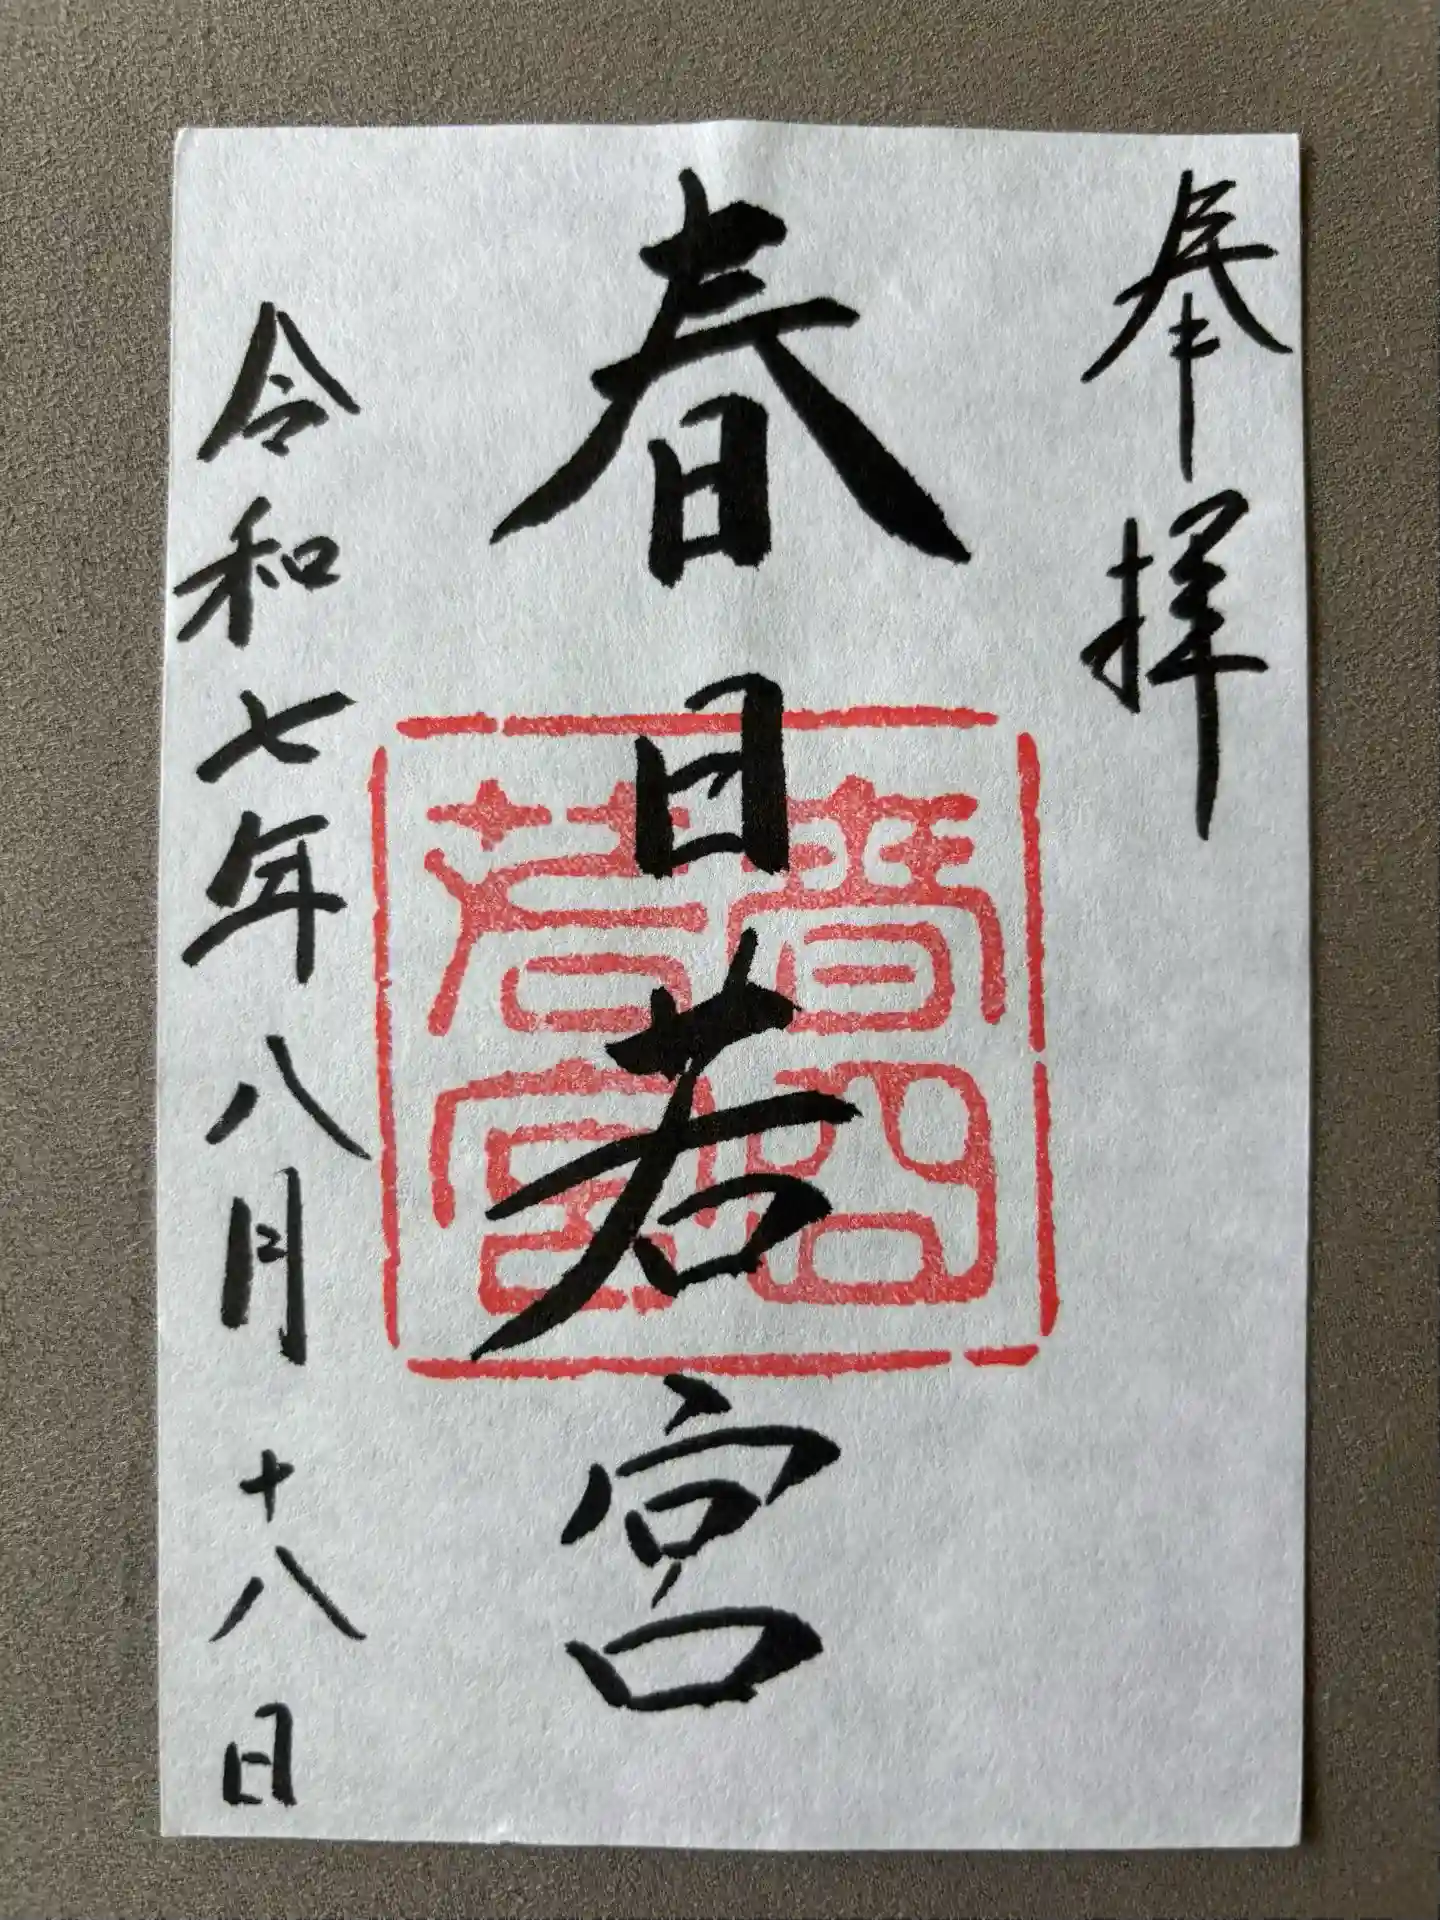 奉拝
春日若宮
令和七年八月十八日